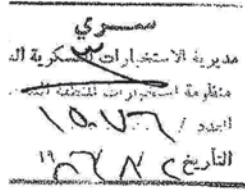 سري
مديرية الاستخبارات العسكرية
منظومة استخبارات المنطقة
العدد / ١٥٠٧٦
التأريخ